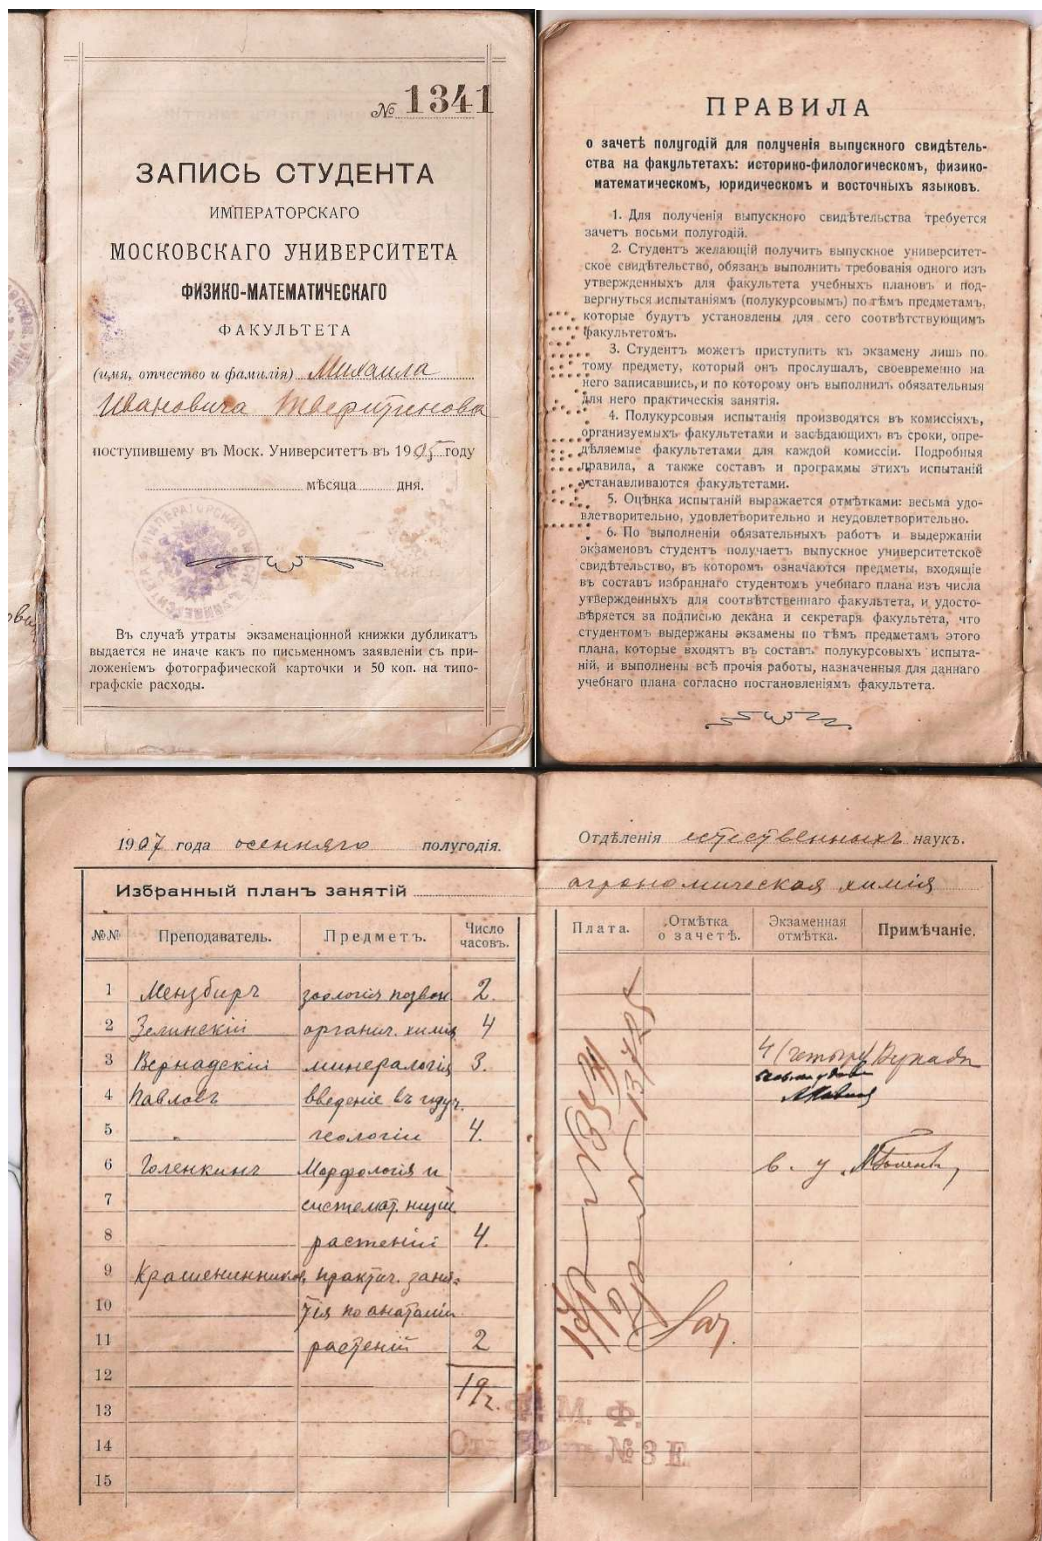 № 1341
ЗАПИСЬ СТУДЕНТА
ИМПЕРАТОРСКАГО
МОСКОВСКАГО УНИВЕРСИТЕТА
ФИЗИКО-МАТЕМАТИЧЕСКАГО
ФАКУЛЬТЕТА
(имя, отчество и фамилія) Михаила
Ивановича Тверитинова
поступившему въ Моск. Университетъ въ 1905 году
мѣсяца дня.
Въ случаѣ утраты экзаменаціонной книжки дубликатъ
выдается не иначе какъ по письменномъ заявленіи съ при-
ложеніемъ фотографической карточки и 50 коп. на типо-
графскіе расходы.
ПРАВИЛА
о зачетѣ полугодій для полученія выпускного свидѣтель-
ства на факультетахъ: историко-филологическомъ, физико-
математическомъ, юридическомъ и восточныхъ языковъ.
1. Для полученія выпускного свидѣтельства требуется
зачетъ восьми полугодій.
2. Студентъ желающій получить выпускное университет-
ское свидѣтельство, обязанъ выполнить требованія одного изъ
утвержденныхъ для факультета учебныхъ плановъ и под-
вергнуться испытаніямъ (полукурсовымъ) по тѣмъ предметамъ,
которые будутъ установлены для сего соотвѣтствующимъ
факультетомъ.
3. Студентъ можетъ приступить къ экзамену лишь по
тому предмету, который онъ прослушалъ, своевременно на
него записавшись, и по которому онъ выполнилъ обязательныя
для него практическія занятія.
4. Полукурсовыя испытанія производятся въ комиссіяхъ,
организуемыхъ факультетами и засѣдающихъ въ сроки, опре-
дѣляемые факультетами для каждой комиссіи. Подробныя
правила, а также составъ и программы этихъ испытаній
устанавливаются факультетами.
5. Оцѣнка испытаній выражается отмѣтками: весьма удо-
влетворительно, удовлетворительно и неудовлетворительно.
6. По выполненіи обязательныхъ работъ и выдержаніи
экзаменовъ студентъ получаетъ выпускное университетское
свидѣтельство, въ которомъ означаются предметы, входящіе
въ составъ избраннаго студентомъ учебнаго плана изъ числа
утвержденныхъ для соотвѣтственнаго факультета, и удосто-
вѣряется за подписью декана и секретаря факультета, что
студентомъ выдержаны экзамены по тѣмъ предметамъ этого
плана, которые входятъ въ составъ полукурсовыхъ испыта-
ній, и выполнены всѣ прочія работы, назначенныя для даннаго
учебнаго плана согласно постановленіямъ факультета.
1907 года осенняго полугодія.
Избранный планъ занятій
№№ Преподаватель. Предметъ. Число часовъ.
1 Мензбиръ зоологія позвон 2.
2 Зелинскій органич. химія 4
3 Вернадскій минералогія 3.
4 Павловъ введеніе въ
5 геологіи 4.
6 Голенкинъ Морфологія и
7 системат. низш
8 растеній 4.
9 Крашенинниковъ практич. заня-
10 тія по анатоміи
11 растеній 2
12 19ч.
13
14
15
Отдѣленія естественныхъ наукъ.
агрономическая химія
Плата. Отмѣтка о зачетѣ. Экзаменная отмѣтка. Примѣчаніе.
4 (четыре)
в. у.
Зач.
Ф. М. Ф.
№ 3 Е